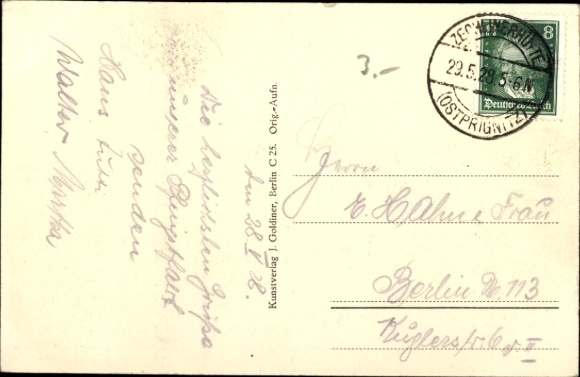 den 28. V 28.
Die herzlichsten Grüße
von unserer Pfingstfahrt
senden
Hans
Walter,
Kunstverlag J. Goldiner, Berlin C 25. Orig.-Aufn.
3.-
ZECHLINERHÜTTE
29.5.28 5-6 N
(OSTPRIGNITZ)
8
Deutsches Reich
Herrn
E. Hahn u. Frau
Berlin N. 113
Kuglerstr. 6 v. II